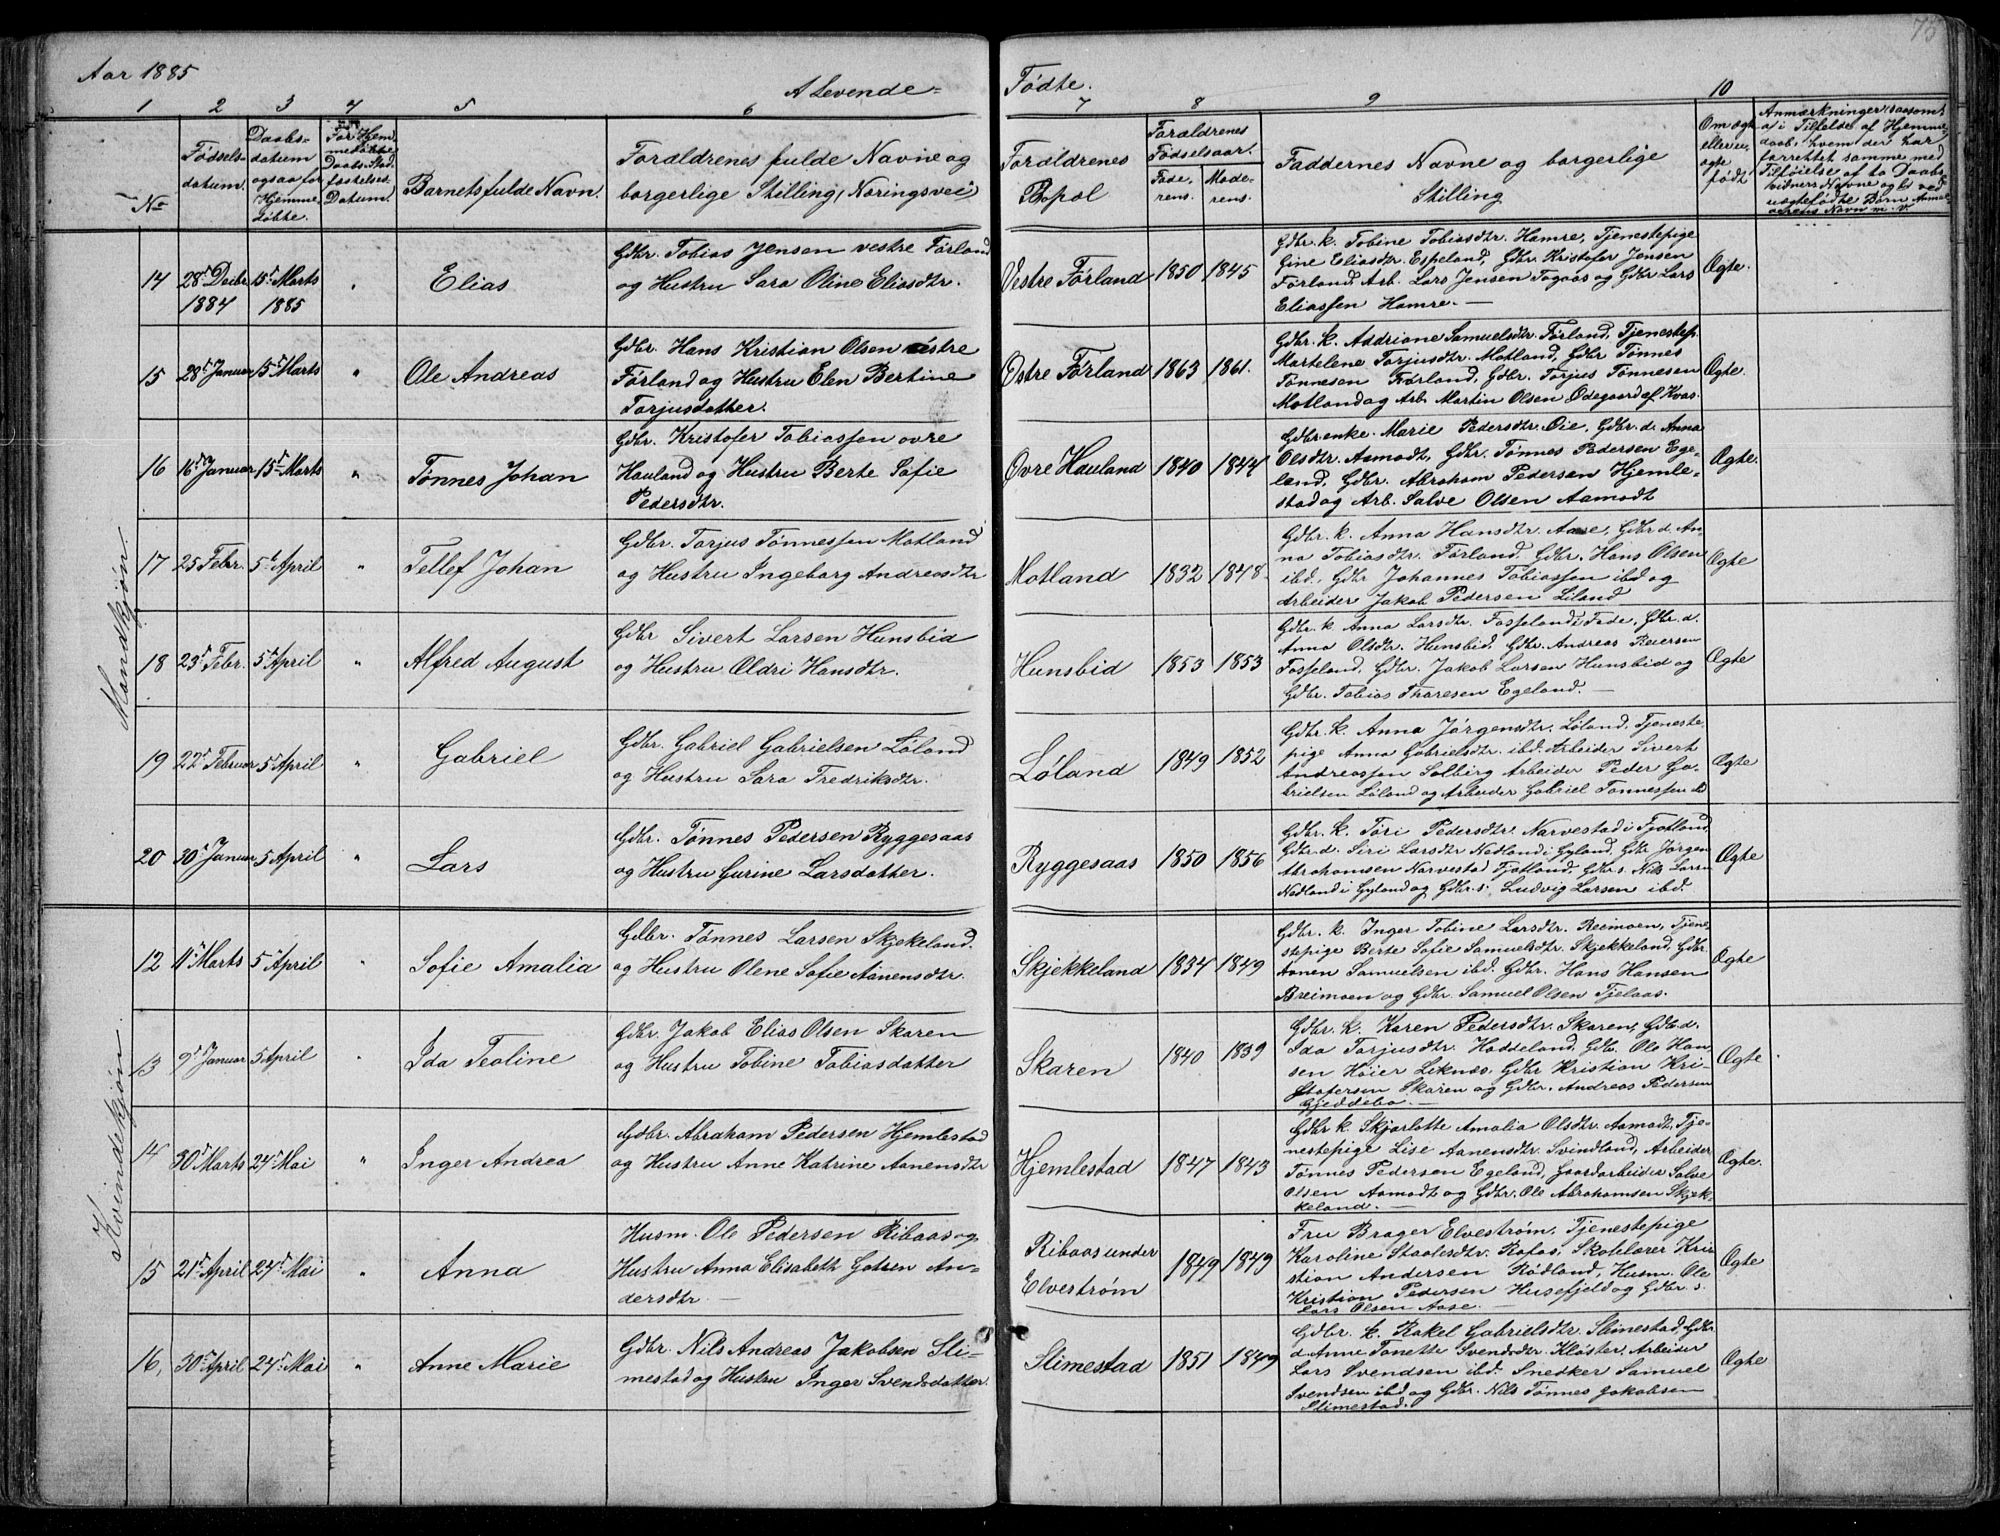 73
Aar 1885
A Levende
Fødte.
1 2 3 4 5 6 7 8 9 10
No
Fødsels-
datum.
Daabs-
datum
ogsaa for
Hjemme-
døbte.
For Hjem-
medøbte
Daabs Stad-
fæstelses
Datum.
Barnets fulde Navn.
Forældrenes fulde Navne og
borgerlige Stilling, (Næringsvei)
Forældrenes
Bopæl
Forældrenes
Fødselsaar.
Fade-
rens.
Mode-
rens.
Faddernes Navne og borgerlige
Stilling
Om ægte
eller u-
ægte
født
Anmærkninger, saasom
i Tilfælde af Hjemme-
daab, hvem der har
forrettet samme med
Tilføielse af to Daabs-
vidners Navne og ved
uægtefødte Børn Anmel-
derens Navn m. v.
Mandkjøn.
14 28de Decbr. 15de Marts " Elias
1884 1885
Gdbr. Tobias Jensen vestre Førland
og Hustru Sara Oline Eliasdtr.
Vestre Førland 1850 1845
Gdbr. k. Tobine Tobiasdtr. Hamre, Tjenestepige
Gine Eliasdtr. Espeland, Gdbr. Kristofer Jensen
Førland, Arb. Lars Jensen Togaas og Gdbr Lars
Eliassen Hamre. —
Ægte.
15 28de Januar 15de Marts " Ole Andreas
Gdbr. Hans Kristian Olsen østre
Førland og Hustru Elen Bertine
Torjusdatter.
Østre Førland 1863 1861.
Gdbr. k. Addriane Samuelsdtr. Førland, Tjenestep.
Martelene Torjusdtr. Motland, Gdbr Tønnes
Tønnesen Førland, Gdbr. Torjus Tønnesen
Motland og Arb. Martin Olsen Ødegaard af Kvas.
Ægte.
16 16de Januar 15de Marts " Tønnes Johan
Gdbr. Kristofer Tobiassen øvre
Hauland og Hustru Berte Sofie
Pedersdtr.
Øvre Hauland 1840 1844
Gdbr. enke Marie Pedersdtr. Øie, Gdbr. d. Anna
Olsdtr. Aamodt, Gdbr. Tønnes Pedersen Ege-
land, Gdbr. Abraham Pedersen Hjemle-
stad og Arb. Salve Olsen Aamodt
Ægte.
17 25 Febr. 5te April " Tellef Johan
Gdbr. Torjus Tønnessen Motland
og Hustru Ingeborg Andreasdtr
Motland 1832 1848
Gdbr. k. Anna Hansdtr. Aase, Gdbr. d. An-
na Tobiasdtr. Førland. Gdbr. Hans Olsen
ibd., Gdbr Johannes Tobiassen ibd og
Arbeider Jakob Pedersen Liland
Ægte
18 23de Febr. 5te April " Alfred August
Gdbr Sivert Larsen Hunsbid
og Hustru Oldri Hansdtr.
Hunsbid 1853 1853
Gdbr. k. Anna Larsdtr. Fosseland i Fede, Gbr. d.
Anna Olsdtr. Hunsbid, Gdbr. Andreas Reiersen
Fosseland, Gdbr. Jakob Larsen Hunsbid og
Gdbr. Tobias Tharesen Egeland. —
Ægte
19 22de Februar 5 April " Gabriel
Gdbr. Gabriel Gabrielsen Løland
og Hustru Sara Fredriksdtr.
Løland 1849 1852
Gdbr. k. Anna Jørgensdtr. Løland, Tjeneste-
pige Anna Gabrielsdtr. ibd. Arbeider Sivert
Andreassen Solberg Arbeider Peder Ga-
brielsen Løland og Arbeider Gabriel Tønnessen ibd
Ægte
20 30te Januar 5 April " Lars
Gdbr. Tønnes Pedersen Ryggesaas
og Hustru Gurine Larsdatter.
Ryggesaas 1850 1856
Gdbr. k. Tøri Pedersdtr. Narvestad i Fjotland,
Gdbr. d. Siri Larsdtr Nedland i Gyland, Gdbr Jørgen
Abrahamsen Narvestad Fjotland, Gdbr. s. Nils Larsen
Nedland i Gyland og Gdbr. s. Ludvig Larsen ibd.
Ægte
Kvindekjøn.
12 11te Marts 5 April " Sofie Amalia
Gdbr. Tønnes Larsen Skjekeland.
og Hustru Olene Sofie Aanensdtr.
Skjekkeland 1834 1849
Gdbr. k. Inger Tobine Larsdtr. Reimoen, Tjene-
stepige Berte Sofie Samuelsdtr. Skjekkeland, Gdbr.
Aanen Samuelsen ibd. Gdbr. Hans Hansen
Breimoen og Gdbr. Samuel Olsen Tjelaas.
Ægte
13 9de Januar 5 April " Ida Teoline
Gdbr. Jakob Elias Olsen Skaren
og Hustru Tobine Tobiasdatter
Skaren 1840 1839
Gdbr. k. Karen Pedersdtr. Skaren, Gdb. d.
Ida Torjusdtr. Haddeland, Gdb. Ole Han-
sen Høier Liknes, Gdbr Kristian Kri-
stofersen Skaren og Gdbr. Andreas Pedersen
Gjeddebo. —
Ægte
14 30te Marts 24de Mai " Inger Andrea
Gdbr. Abraham Pedersen Hjemlestad
og Hustru Anne Katrine Aanensdtr
Hjemlestad 1847 1843
Gdbr k. Skjarlotte Amalia Olsdtr. Aamodt, Tje-
nestepige Lise Aanensdtr. Svindland, Arbeider
Tønnes Pedersen Egeland, Gaardarbeider Salve
Olsen Aamodt og Gdbr. Ole Abrahamsen Skjek-
keland. —
Ægte.
15 21de April 24de Mai " Anna
Husm. Ole Pedersen Ribaas og
Hustru Anna Elisabeth Gotren An-
dersdtr. —
Ribaas under
Elvestrøm 1849 1849
Fru Brager Elvestrøm, Tjenestepige
Karoline Staalesdtr. Rafos, Skolelærer Kri-
stian Andersen Rødland, Husm. Ole
Kristian Pedersen Husefjeld og Gdbr. s.
Lars Olsen Aase. —
Ægte
16, 30te April 24de Mai " Anne Marie
Gdbr. Nils Andreas Jakobsen Sli-
mestad og Hustru Inger Svendsdatter.
Slimestad 1851 1849
Gdbr. k. Rakel Gabrielsdtr. Slimestad, Gdbr.
d. Anne Tonette Svendsdtr. Kloster, Arbeider
Lars Svendsen ibd. Snedker Samuel
Svendsen ibd og Gdbr. Nils Tønnes Jakobsen
Slimestad.
Ægte